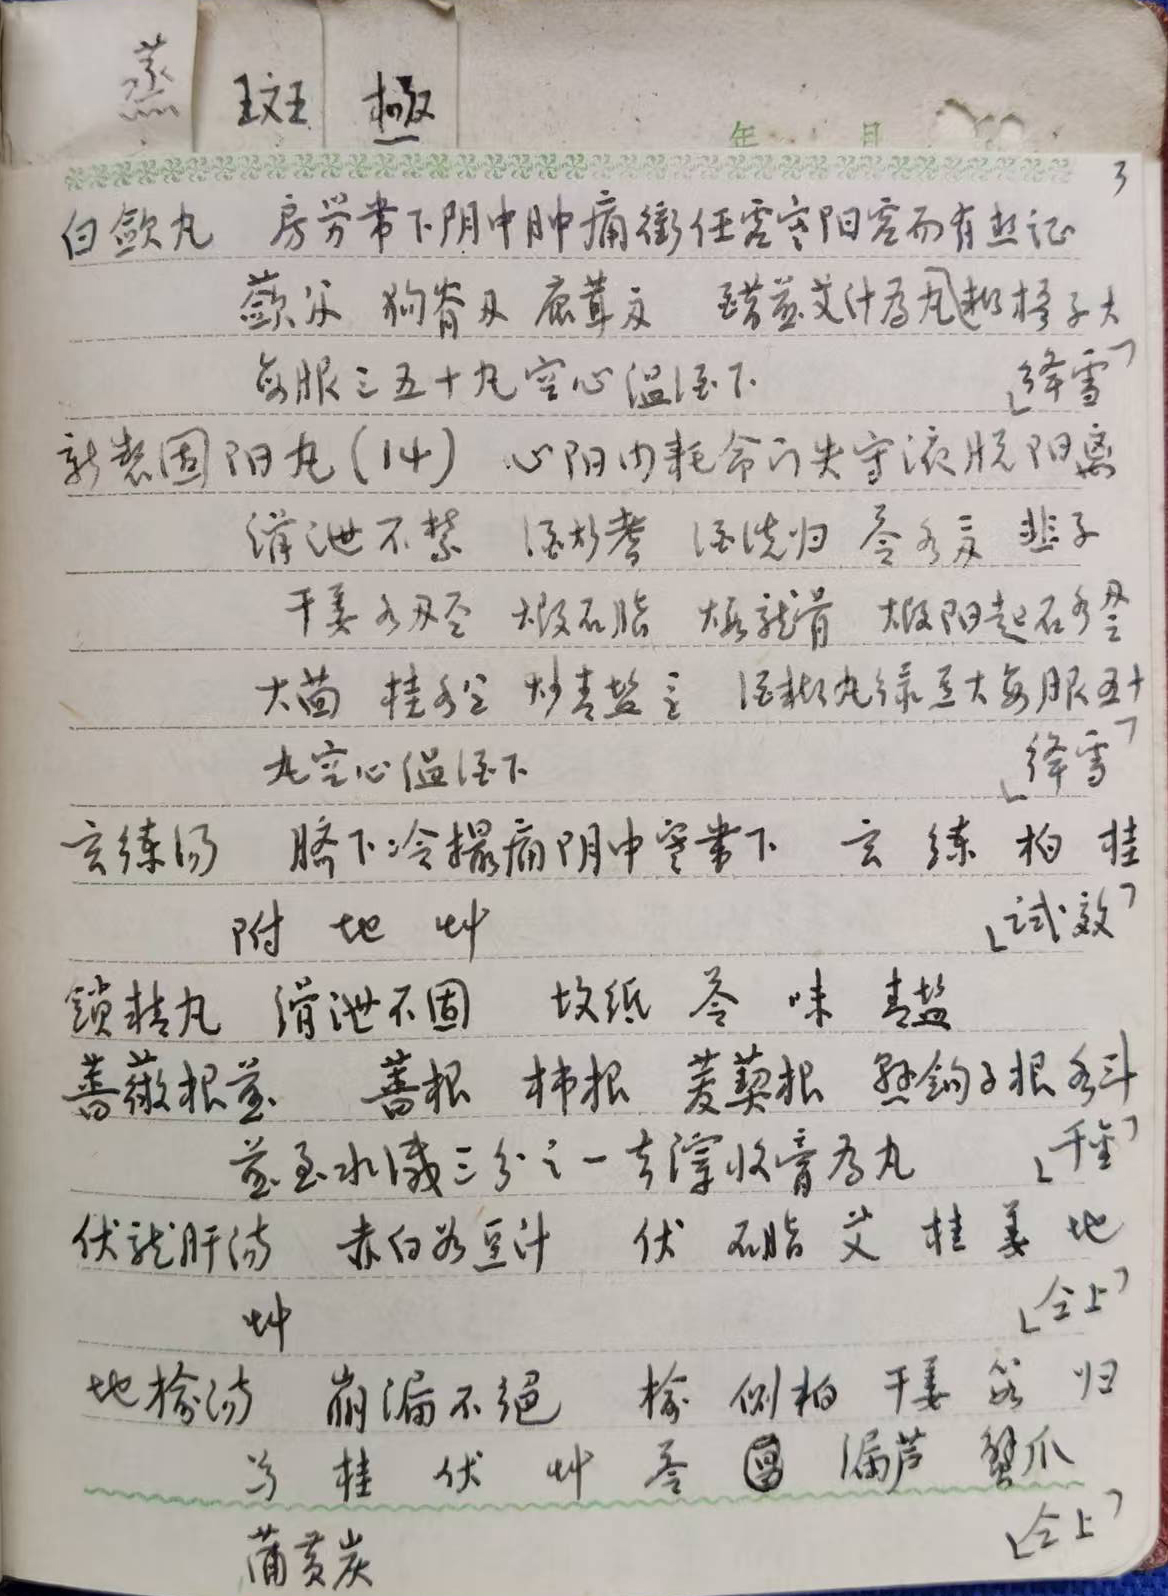 蒸 斑 極
年 日
3
白蘞丸 房劳带下阴中肿痛衝任虚寒阳虚而有热证
蘞 狗脊 鹿茸 醋 艾汁为丸 梧子大
每服三五十丸空心温酒下 「绛雪」
新製固阳丸(14) 心阳内耗命门失守液脱阳离
滑泄不禁 酒炒 酒洗归 苓各 韭子
干姜各 煅石脂 煅龙骨 煅阳起石各
大茴 桂各 炒青盐 酒糊丸绿豆大每服五十
丸空心温酒下 「绛雪」
玄練汤 脐下冷撮痛阴中寒带下 玄 練 柏 桂
附 地 艸 「试效」
鎖精丸 滑泄不固 故纸 苓 味 青盐
薔薇根煎 薔根 柿根 菝葜根 悬鈎子根各斗
煎至水减三分之一去滓收膏为丸 「千金」
伏龙肝汤 赤白如豆汁 伏 石脂 艾 桂 姜 地
艸 「仝上」
地榆汤 崩漏不绝 榆 侧柏 干姜 归
桂 伏 艸 苓 漏芦 蟹爪
蒲黄炭 「仝上」